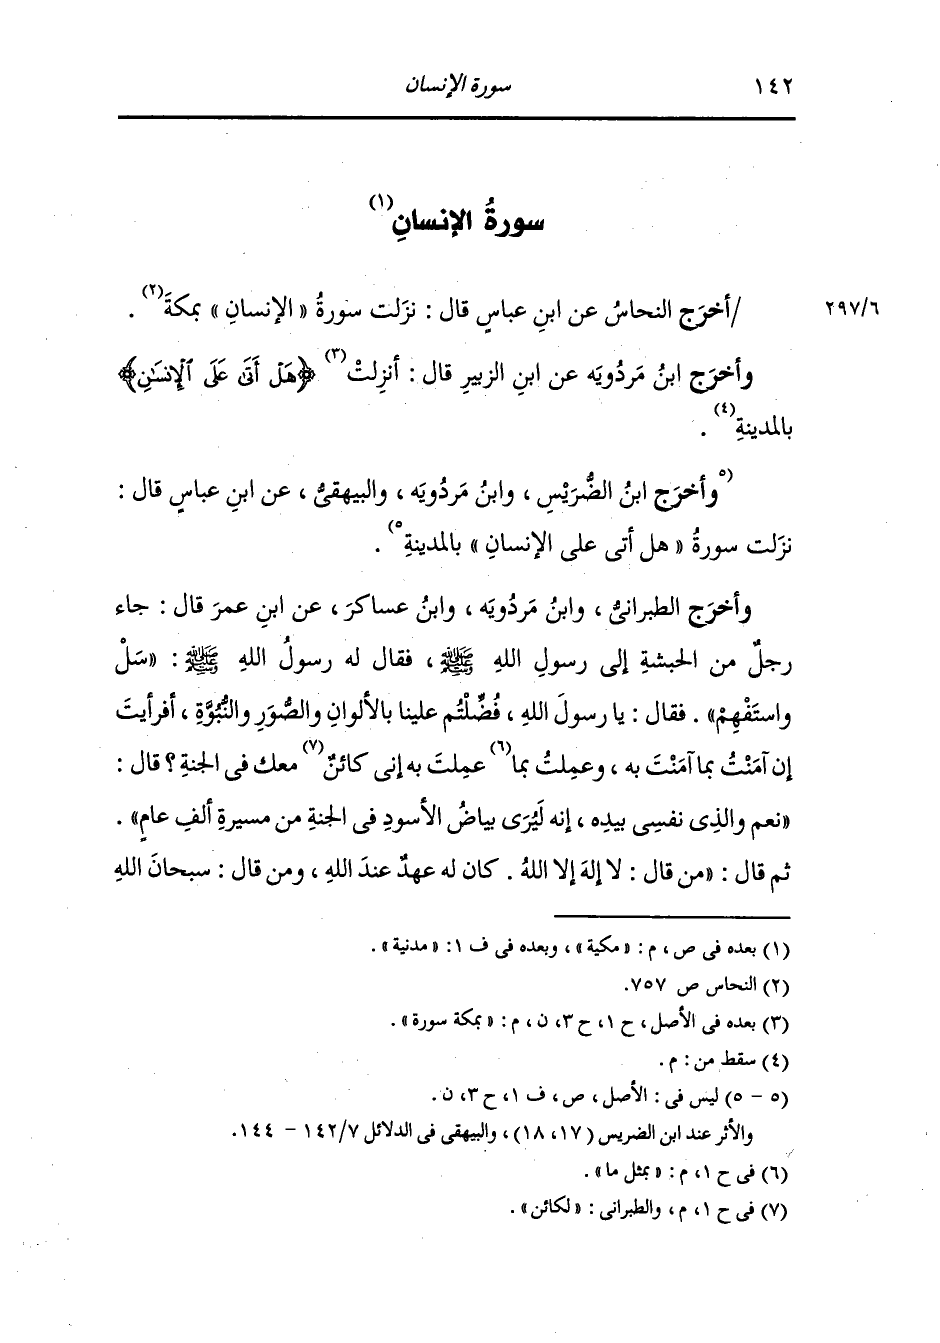 ١٤٢ سورة الإنسان
سورةُ الإنسانِ(١)
٢٩٧/٦ /أخرَج النحاسُ عن ابنِ عباسٍ قال : نزَلت سورةُ « الإنسانِ » بمكةَ(٢) .
وأخرَج ابنُ مَردُويَه عن ابنِ الزبيرِ قال : أُنزِلتْ(٣) ﴿هَلۡ أَتَىٰ عَلَى ٱلۡإِنسَٰنِ﴾
بالمدينةِ(٤) .
(٥وأخرَج ابنُ الضُّرَيْسِ ، وابنُ مَردُويَه ، والبيهقىُّ ، عن ابنِ عباسٍ قال :
نزَلت سورةُ « هل أتى على الإنسانِ » بالمدينةِ٥) .
وأخرَج الطبرانىُّ ، وابنُ مَردُويَه ، وابنُ عساكرَ ، عن ابنِ عمرَ قال : جاء
رجلٌ من الحبشةِ إلى رسولِ اللهِ ﷺ ، فقال له رسولُ اللهِ ﷺ : «سَلْ
واستَفْهِمْ» . فقال : يا رسولَ اللهِ ، فُضِّلْتُم علينا بالألوانِ والصُّوَرِ والنُّبُوَّةِ ، أفرأيتَ
إن آمَنْتُ بما آمَنْتَ به ، وعمِلتُ بما(٦) عمِلتَ به إنى كائنٌ(٧) معك فى الجنةِ ؟ قال :
«نعم والذِى نفسِى بيدِه ، إنه لَيُرَى بياضُ الأسودِ فى الجنةِ من مسيرةِ ألفِ عامٍ» .
ثم قال : «من قال : لا إلهَ إلا اللهُ . كان له عهدٌ عندَ اللهِ ، ومن قال : سبحانَ اللهِ
(١) بعده فى ص ، م : «مكية» ، وبعده فى ف ١ : «مدنية» .
(٢) النحاس ص ٧٥٧.
(٣) بعده فى الأصل ، ح ١، ح ٣، ن ، م : «بمكة سورة» .
(٤) سقط من : م .
(٥ - ٥) ليس فى : الأصل ، ص ، ف ١، ح ٣، ن .
والأثر عند ابن الضريس (١٧، ١٨) ، والبيهقى فى الدلائل ١٤٢/٧ - ١٤٤.
(٦) فى ح ١، م : «بمثل ما» .
(٧) فى ح ١، م ، والطبرانى : «لكائن» .